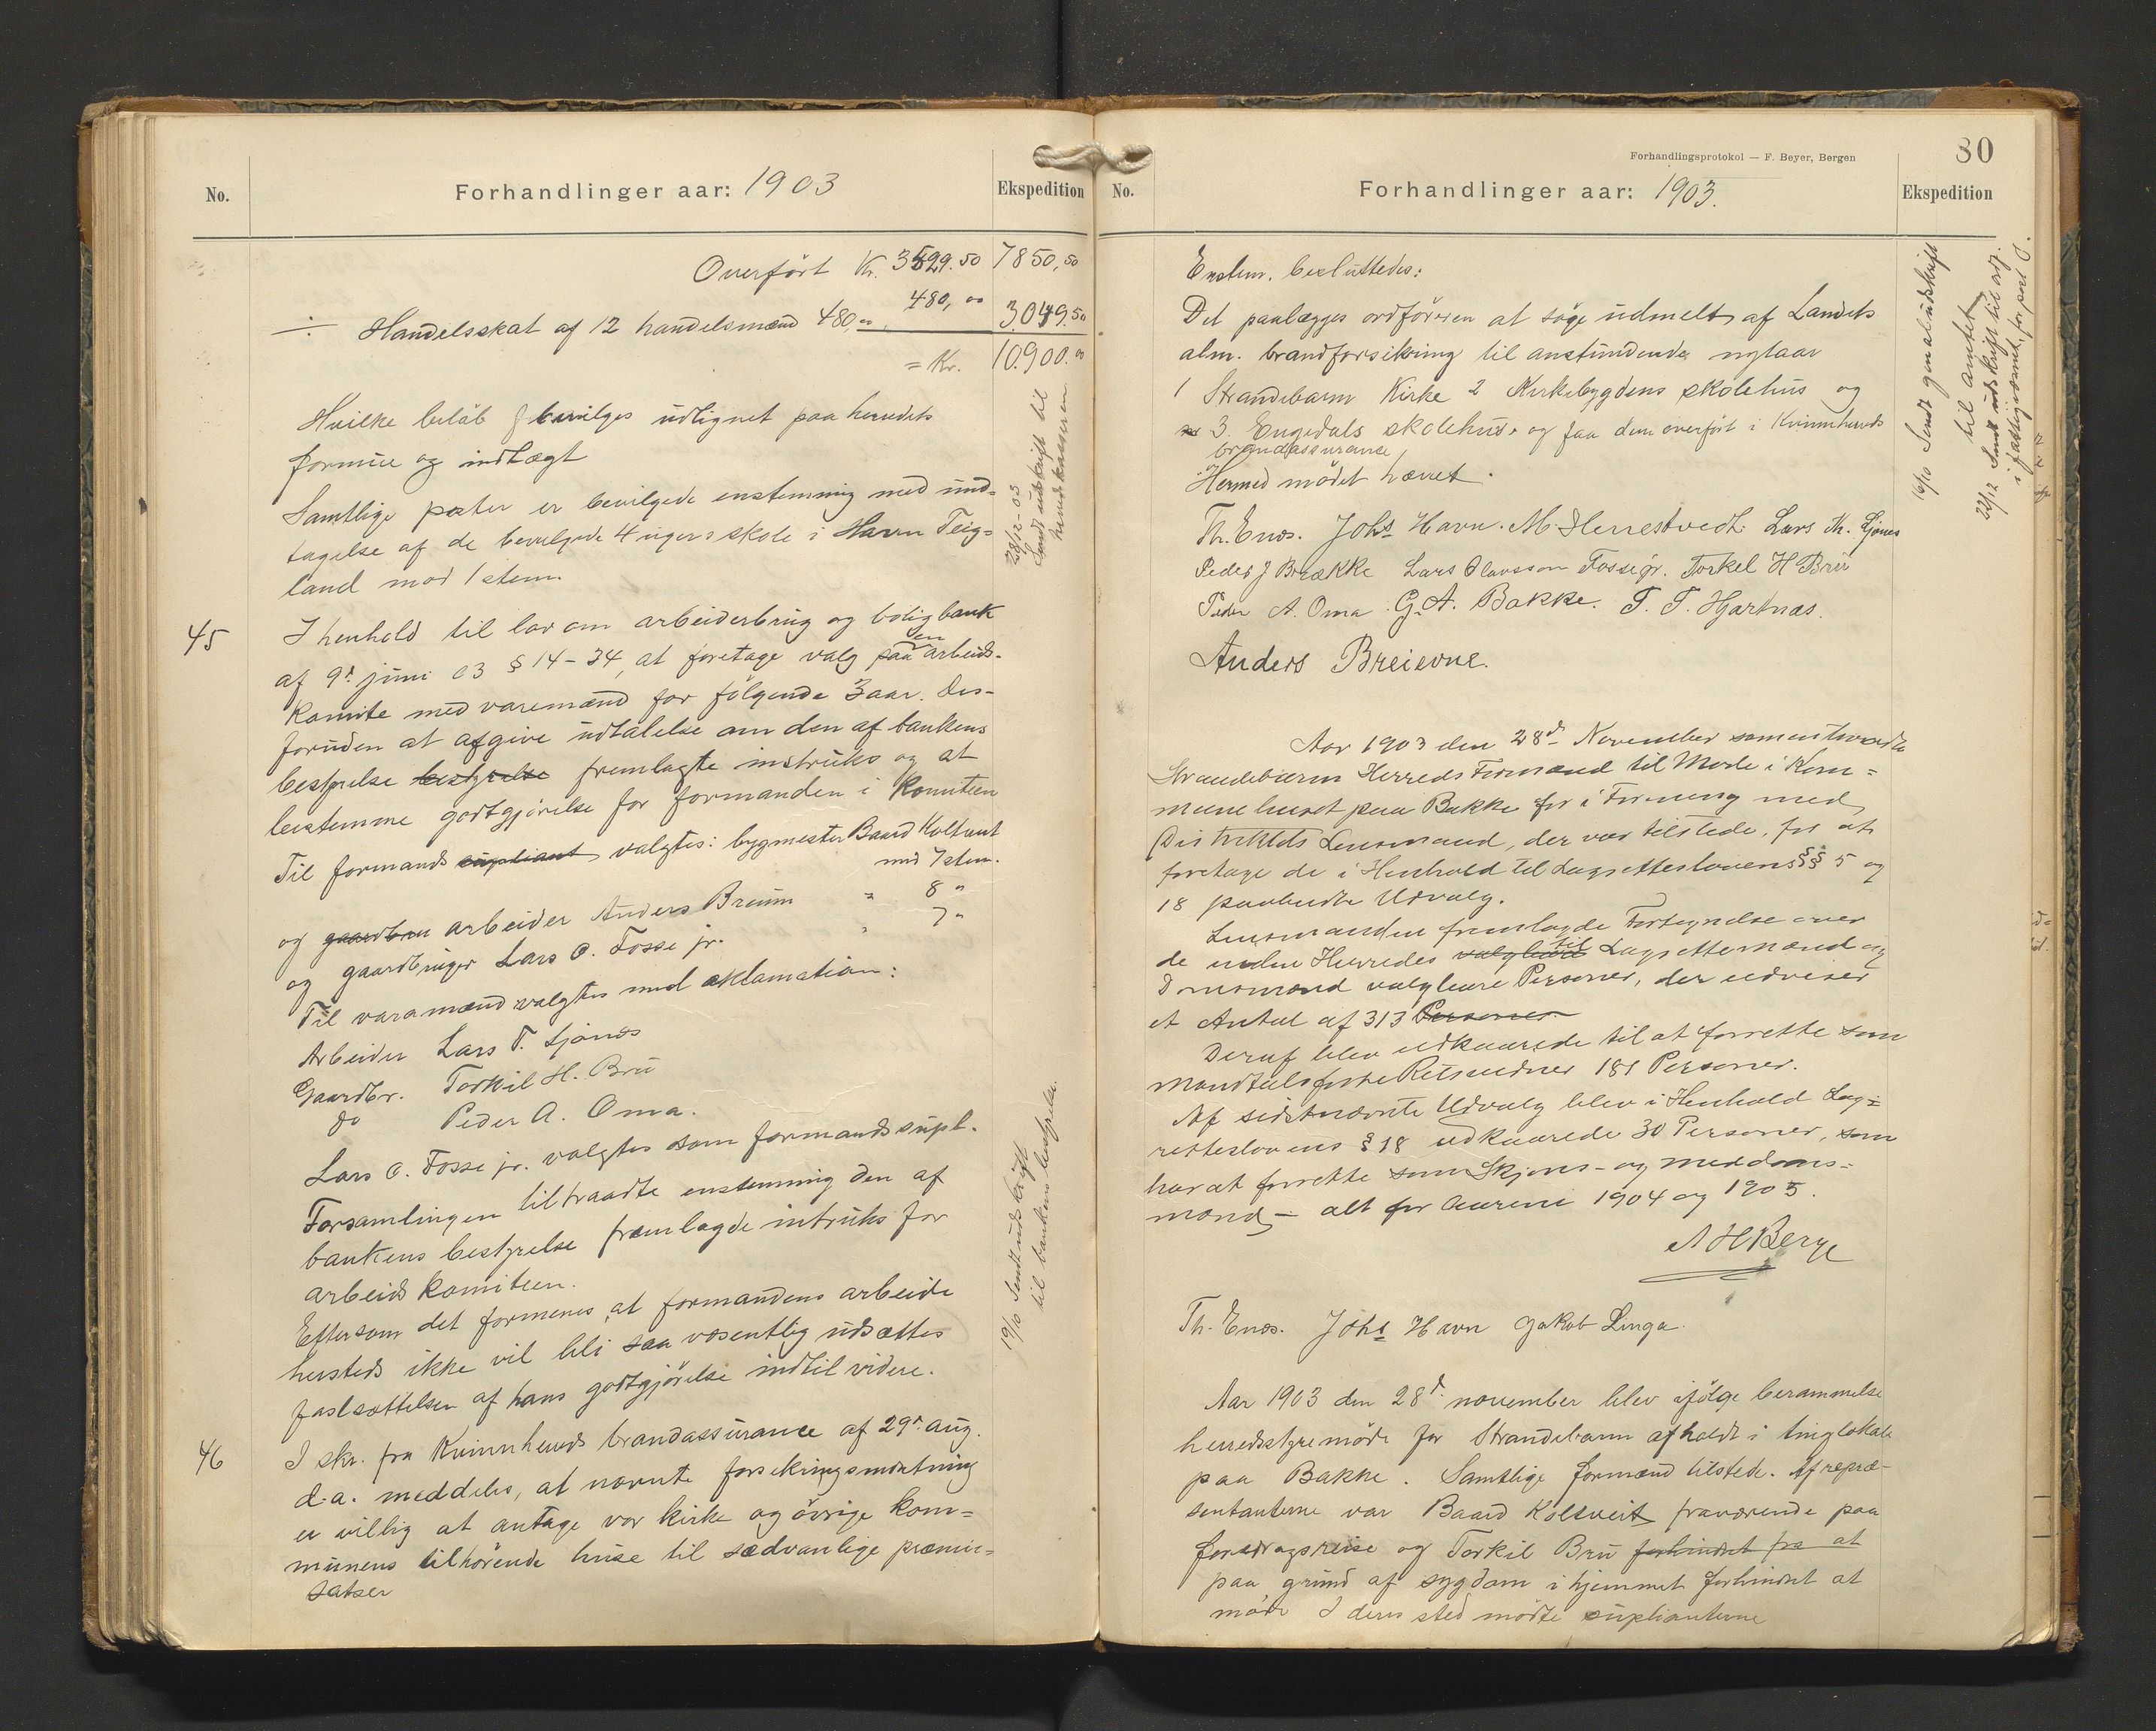 No.
Forhandlinger aar: 1903
Ekspedition
Overført Kr. 3529.50 7850,50
÷ Handelsskat af 12 handelsmænd 480,00 480,00 3.049.50
= Kr. 10.900.00
Hvilke beløb bevilges udlignet paa herredets
formue og indtægt
Samtlige poster er bevilgede enstemmig med und-
tagelse af de bevilgede 4 ugers skole i Havn Teig-
land mod 1 stem.
28/12-03
Sendt udskrift til
herredskasseren
45
I henhold til lov om arbeiderbrug og boligbank
af 9d juni 03 § 14-34, at foretage valg paa en arbeids-
komite med varemænd for følgende 3 aar. Des-
foruden at afgive udtalelse om den af bankens
bestyrelse bestyrelse fremlagte instruks og at
bestemme godtgjørelse for formanden i komiteen
Til formands supliant valgtes: bygmester Baard Koltveit
med 7 stem.
og gaardbru arbeider Anders Breium " 8 "
og gaardbruger Lars O. Fosse jr. " 7 "
Til varamænd valgtes med aklamation:
Arbeider Lars T. Ljones
Gaardbr. Torkil H. Bru
do Peder A. Oma.
Lars O. Fosse jr. valgtes som formands supl.
Forsamlingen tiltraadte enstemmig den af
bankens bestyrelse fremlagde intruks for
arbeidskomiteen.
Eftersom det formenes, at formandens arbeide
hersteds ikke vil bli saa væsentlig udsættes
fastsættelsen af hans godtgjørelse indtil videre.
19/10 Sendt udskrift
til bankens bestyrelse.
46
I skr. fra Kvinnherreds brandassurance af 29d aug.
d.a. meddeles, at nævnte forsikringsindretning
er villig at antage vor kirke og øvrige kom=
munens tilhørende huse til sædvanlige præmie=
satser
Forhandlingsprotokol — F. Beyer, Bergen
80
No.
Forhandlinger aar: 1903.
Ekspedition
Enstem. besluttedes:
Det paalægges ordføreren at søge udmelt af Landets
alm. brandforsikring til anstundende nytaar
1 Strandebarm Kirke 2 Kirkebygdens skolehus og
3. Engedals skolehus og faa dem overført i Kvinnherreds
brandassurance
Hermed mødet hævet.
16/10 Sendt genaludskrift
til amtet
22/12 Sendt udskrift til
Th. Enes. Johs Havn. M Herrestvedt. Lars M. Ljones
Peder J Brække Lars Olavsson Fosse jr. Torkel H Bru
Peder A. Oma G. A. Bakke. T. T. Hjartnæs.
Anders Breievne.
Aar 1903 den 28d November sammentraadte
Strandebarm Herreds Formænd til Møde i Kom=
munehuset paa Bakke for i Forening med
Distriktets Lensmand, der var tilstede, for at
foretage de i Henhold til Lagrettesloven §§ 5 og
18 paabudte Udvalg.
Lensmanden fremlagde Fortegnelse over
de inden Herredet valgbare til Lagrettemænd og
Domsmænd valgbare Personer, der udviser
et Antal af 313 Personer.
Deraf blev udkaarede til at forrette som
mandtalsførte Retsvidner 181 Personer.
Af sidstnævnte Udvalg blev i Henhold Lag=
retteslovens § 18 udkaarede 30 Personer, som
har at forrette som Skjøns- og meddoms=
mænd — alt for Aarene 1904 og 1905.
A H Berge
Th. Enes. Johs Havn Jakob Linga.
Aar 1903 den 28d november blev ifølge berammelse
herredsstyremøde for Strandebarm afholdt i tinglokalet
paa Bakke. Samtlige formænd tilstede. Af repræ-
sentanterne var Baard Kolltveit fraværende paa
foredragsreise og Torkil Bru forhindret fra at
paa grund af sygdom i hjemmet forhindret at
møde I deres sted mødte suplianterne